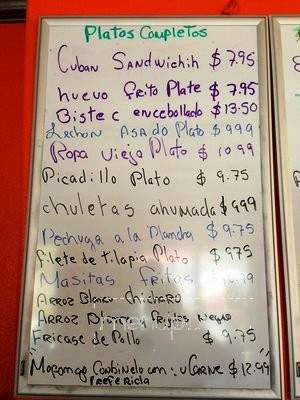 Platos Completos
Cuban Sandwichih $7.95
huevo frito Plate $7.95
Bistec encebollado $13.50
Lechon ASAdo Plato $999
Ropa vieja Plato $10.99
Picadillo Plato $9.75
chuletas ahumada $999
Pechuga a la Plancha $9.75
filete de tilapia Plato $975
Masitas fritas
Arroz Blanco chicharo
Arroz Blanco y frijoles Negro
Fricase de Pollo $9.75
"Mofongo Combinelo con su Carne $12.99"
Preferida